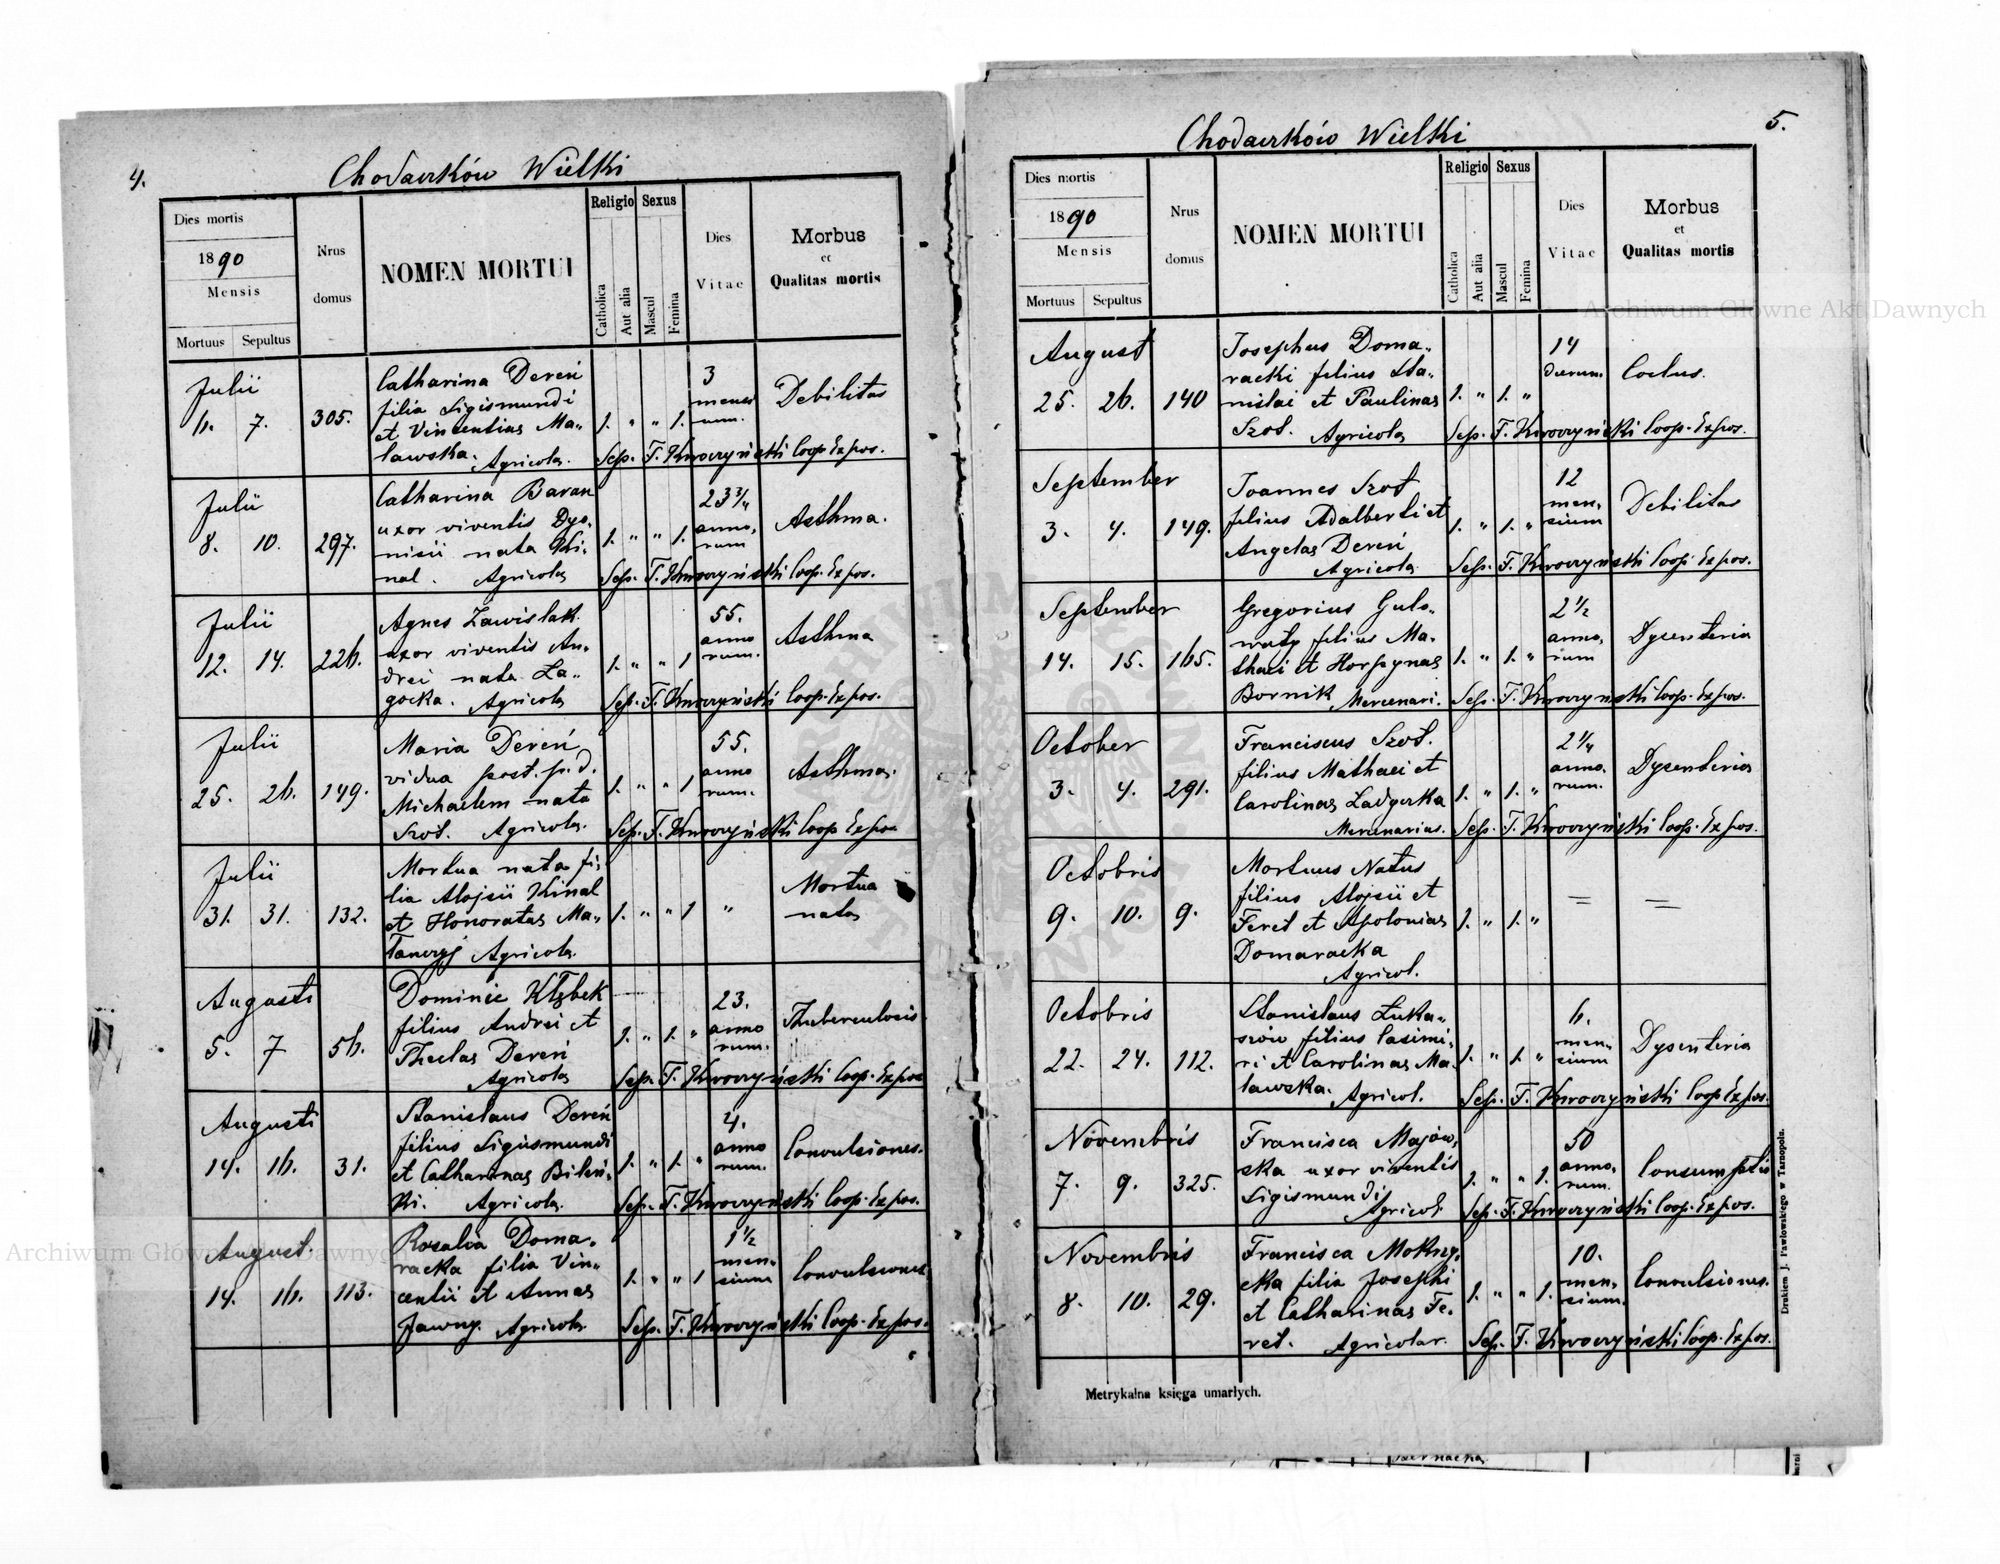 4.
Chodaczków Wielki
Dies mortis
1890
Mensis
Mortuus
Sepultus
Nrus
domus
NOMEN MORTUI
Religio
Catholica
Aut alia
Sexus
Mascul
Femina
Dies
Vitae
Morbus
et
Qualitas mortis
Julii
6. 7. 305.
Catharina Dereń
filia Sigismundi
et Vincentias Ma-
lawska. Agricola.
1. " " 1.
3
mensi
um.
Debilitas
Sep. F. Kwoczyński Coop. Expos.
Julii
8. 10. 297.
Catharina Baran
uxor viventis Dyo-
nisii nata Ki-
nal. Agricola
1. " " 1.
23 3/4
anno,
rum
Asthma.
Sep. F. Kwoczyński Coop. Expos.
Julii
12. 14. 226.
Agnes Zawislak
uxor viventis An-
drei nata La-
gocka. Agricola
1. " " 1
55.
anno
rum.
Asthma
Sep. F. Kwoczyński Coop. Expos.
Julii
25. 26. 149.
Maria Dereń
vidua post. p. d.
Michaelem nata
Szot. Agricola.
1. " " 1
55.
anno
rum.
Asthma.
Sep. F. Kwoczyński Coop Expos
Julii
31. 31. 132.
Mortua nata fi-
lia Alojsii Kinal
et Honoratas Ma-
Agricola.
1. " " 1
"
Mortua
nata
Augusti
5. 7 56.
Dominic Kłębek
filius Andrei et
Theclas Dereń
Agricola
1. " 1. "
23.
anno
rum.
Thuberculosis.
Sep. F. Kwoczyński Coop. Expos
Augusti
14. 16. 31.
Stanislaus Dereń
filius Sigismundi
et Catharinas Bileń-
ki. Agricola.
1. " 1. "
4.
anno
rum.
Convulsiones.
Sep. F. Kwoczyński Coop. Expos.
August.
14. 16. 113.
Rosalia Doma-
racka filia Vin-
centii et Annas
Jawny. Agricola.
1. " " 1
1 1/2
men-
sium
Convulsiones
Sep. F. Kwoczyński Coop. Expos.
5.
Chodaczków Wielki
Dies mortis
1890
Mensis
Mortuus
Sepultus
Nrus
domus
NOMEN MORTUI
Religio
Catholica
Aut alia
Sexus
Mascul
Femina
Dies
Vitae
Morbus
et
Qualitas mortis
August
25. 26. 140
Josephus Doma-
racki filius Sta-
nislai et Paulinas
Szot. Agricola
1. " 1. "
14
dierum.
Coelus.
Sep. F. Kwoczyński Coop. Expos.
September
3. 4. 149.
Joannes Szot
filius Adalberti et
Angelas Dereń
Agricola
1. " 1. "
12
men-
sium
Debilitas
Sep. F. Kwoczyński Coop. Expos.
September
14. 15. 165.
Gregorius Gulo-
waty filius Ma-
thaei et Horpynas
Bornik Mercenari.
1. " 1. "
2 1/2
anno,
rum
Dysenteria
Sep. F. Kwoczyński Coop. Expos.
October
3. 4. 291.
Franciscus Szot.
filius Mathaei et
Carolinas Ladyczka
Mercenarius.
1. " 1. "
2 1/4
anno.
rum.
Dysenteria
Sep. F. Kwoczyński Coop. Expos.
Octobris
9. 10. 9.
Mortuus Natus
filius Alojsii et
Feret et Apolonias
Domaracka
Agricol.
1. " 1. "
= =
Octobris
22. 24. 112.
Stanislaus Łuka-
szów filius Casimi-
ri et Carolinas Ma-
lawska. Agricol.
1. " 1. "
6.
men-
sium
Dysenteria
Sep. F. Kwoczyński Coop Expos.
Novembris
7. 9. 325.
Francisca Majów-
ska uxor viventis
Sigismundi
Agricol.
1. " " 1.
50
anno,
rum.
Consumptio
Sep. F. Kwoczyński Coop. Expos.
Novembris
8. 10. 29.
Francisca Mokrzy-
cka filia Josephi
et Catharinas Fe-
ret. Agricolar.
1. " " 1.
10.
men-
sium.
Convulsiones.
Sep. F. Kwoczyński Coop. Expos.
Metrykalna księga umarłych.
Drukiem J. Pawłowskiego w Tarnopolu.
Archiwum Główne Akt Dawnych
Archiwum Główne Akt Dawnych